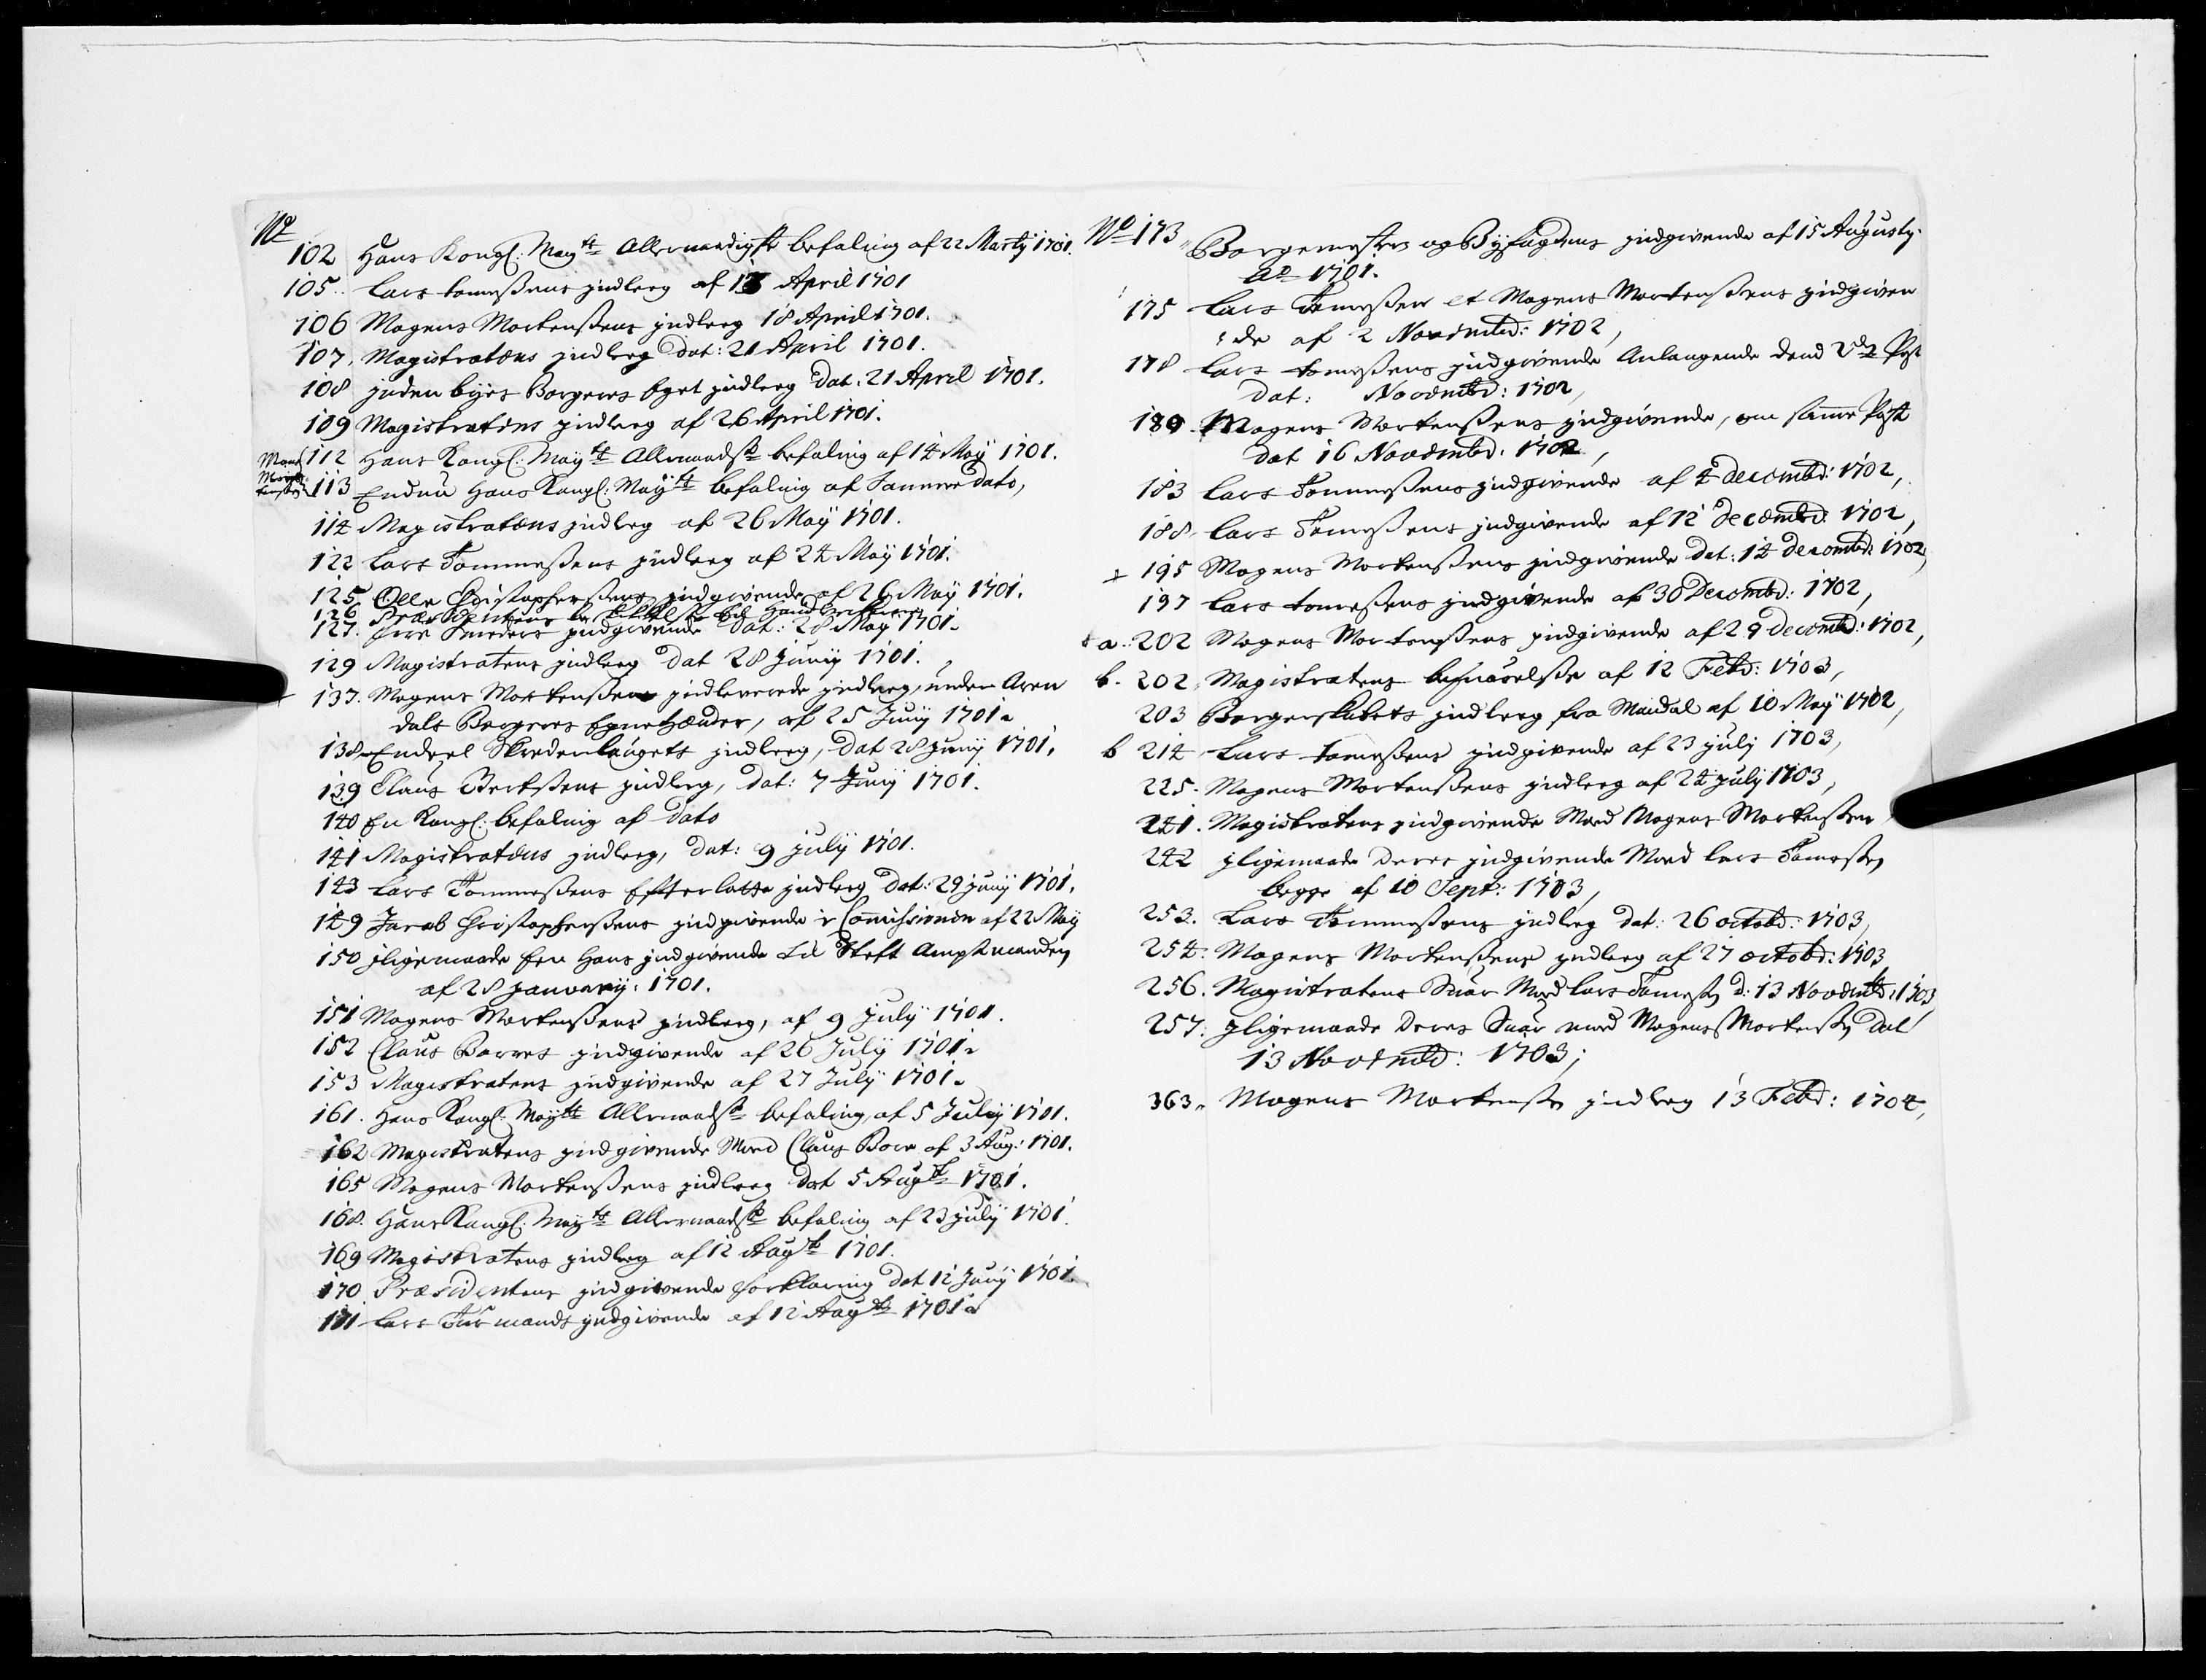 No
102 Hans Kongl: Maytt Allernaadigste befaling af 22 Marty 1701.
105.. Lars tomeßens indleg af 13 April 1701
106 Mogens Mortenßens indleg 18 April 1701.
107, Magistratens indleg dat: 21 April 1701.
108 inden byes Borgeres eget indleg dat. 21 April 1701.
109 Magistratens indleg af 26 April 1701.
112 Hans Kongl: Maytt Allernaadste befaling af 14 May 1701.
113 Endnu Hans Kongl: Maytt befaling af Samme dato,
114 Magistratens indleg af 26 May 1701.
122 Lars Tommeßens indleg af 24 May 1701.
125. Olle Christopherßens indgivende af 26 May 1701.
126 Præsidentens til Handverkerne
127. Smeders indgivende dat: 28 May 1701.
129 Magistratens indleg dat 28 Juny 1701.
137. Mogens Mortenßens indleverede indleg, under Aren
dals Borgeres Egne hænder, af 25 Juny 1701.
138. Endeel Skrederlaugets indleg, dat 28 Juny 1701.
139 Claus Bertßens indleg, dat: 7 Juny 1701.
140 En Kongl: befaling af dato
141 Magistratens indleg, dat: 9 july 1701.
143 Lars Tommeßens Efterlatte indleg dat: 29 juny 1701.
149 Jacob Christopherßens indgivende i Commissionen af 22 May
150 jligemaade hans indgivende til Steft Amptmanden
af 28 january: 1701.
151 Mogens Mortenßens indleg, af 9 July 1701.
152 Claus Borres indgivende af 26 July 1701.
153 Magistratens indgivende af 27 July 1701.
161. Hans Kongl: Maytt Allernaadste befaling, af 5 July 1701.
162 Magistratens indgivende Mod Claus Bore af 3 Aug: 1701.
165 Mogens Mortenßens indleg dat 5 Augst 1701.
168. Hans Kongl: Maytt Allernaadste befaling af 23 july 1701.
169 Magistratens indleg af 12 Augst 1701.
170. Præsidentens indgivende forklaring dat 12 Juny 1701.
171 Lars indgivende af 12 Augst 1701.
No 173 Borgemester og Byfogdens indgivende af 15 Augusty
Ao 1701.
175 Lars Tomeßen et Mogens Mortenßens indgiven
de af 2 Novembd: 1702,
178 Lars tomeßens indgivende Anlangende dend 2den Post
dat: Novembd: 1702,
180 Mogens Mortenßens indgivende, om samme Post
dat 16 Novembd: 1702,
183 Lars Tommeßens indgivende af 4 decembd: 1702,
188 Lars Tomeßens indgivende af 12 decembd: 1702,
195 Mogens Mortenßens indgivende dat: 14 decembd: 1702,
197 Lars tomeßens indgivende af 30 Decembd: 1702,
a. 202 Mogens Mortenßens indgivende af 29 decembd: 1702,
b. 202 Magistratens besuarelße af 12 Febd: 1703,
203 Borgerskabets indleg fra Mandal af 10 May 1702,
b 214 Lars tomeßens indgivende af 23 july 1703,
225. Mogens Mortenßens indleg af 24 july 1703,
241. Magistratens indgivende Mod Mogens Mortenßen
242 jligemaade deres indgivende Mod Lars Tomeßen
begge af 10 Sept: 1703,
253. Lars Tommeßens indleg dat: 26 octobd: 1703,
254: Mogens Mortenßens indleg af 27 octobd: 1703
256. Magistratens Suar Mod Lars Tomeßen d: 13 Novembd: 1703
257. jligemaade deres Suar mod Mogens Mortenßen dat
13 Novembd: 1703;
363. Mogens Mortenßen indleg 13 Febd: 1704,